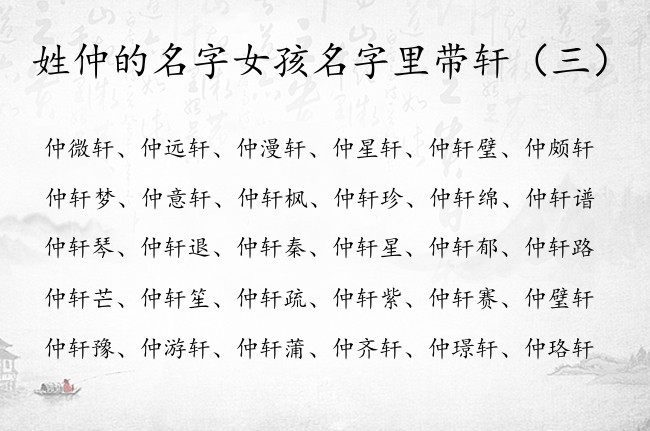 姓仲的名字女孩名字里带轩（三）
仲微轩、仲远轩、仲漫轩、仲星轩、仲轩璧、仲颇轩
仲轩梦、仲意轩、仲轩枫、仲轩珍、仲轩绵、仲轩谱
仲轩琴、仲轩退、仲轩秦、仲轩星、仲轩郁、仲轩路
仲轩芒、仲轩笙、仲轩疏、仲轩紫、仲轩赛、仲璧轩
仲轩豫、仲游轩、仲轩蒲、仲齐轩、仲璟轩、仲珞轩